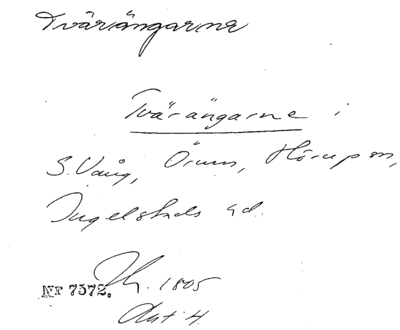 Tvärängarne
Tvärängarne i
S. Vång, Örum, Hörups sn,
Ingelstads hd.
Nr 7572. 1805
Akt 4